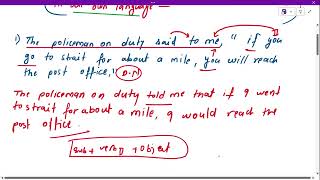 in our own language —
1) The policeman on duty said to me, " if you
go to strait for about a mile, you will reach
the post office," (D.N)
The policeman on duty told me that if I went
to strait for about a mile, I would reach the
post office.
sub + verb + object